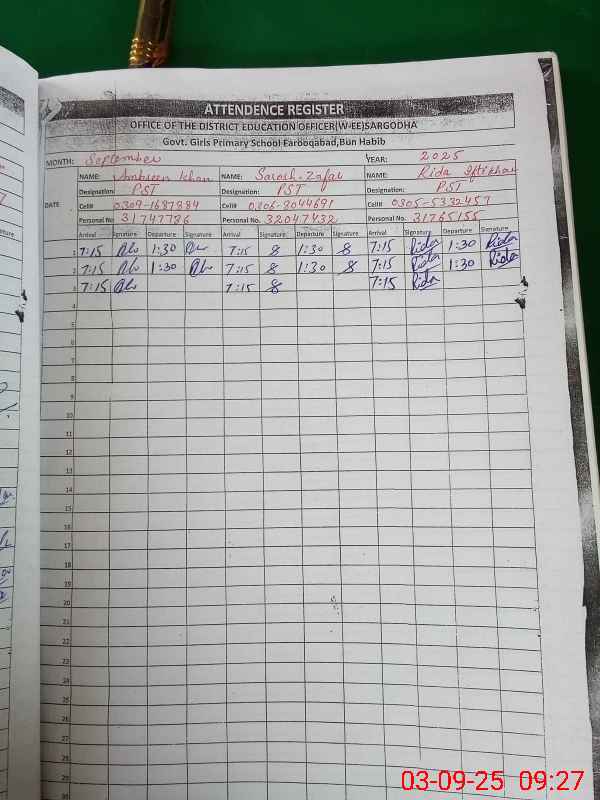 ATTENDENCE REGISTER
OFFICE OF THE DISTRICT EDUCATION OFFICER(W-EE)SARGODHA
Govt. Girls Primary School Farooqabad,Bun Habib
MONTH: September YEAR: 2025
NAME: Ambreen Khan NAME: Sarosh-Zafar NAME: Rida Iftikhar
Designation: PST Designation: PST Designation: PST
Cell# 0309-1687884 Cell# 0306-8044691 Cell# 0305-5332457
Personal No. 31747786 Personal No. 32047432 Personal No. 31765155
DATE Arrival Signature Departure Signature Arrival Signature Departure Signature Arrival Signature Departure Signature
1 7:15 1:30 7:15 1:30 7:15 Rida 1:30 Rida
2 7:15 1:30 7:15 1:30 7:15 Rida 1:30 Rida
3 7:15 7:15 7:15 Rida
4
5
6
7
8
9
10
11
12
13
14
15
16
17
18
19
20
21
22
23
24
25
26
27
28
29
03-09-25 09:27